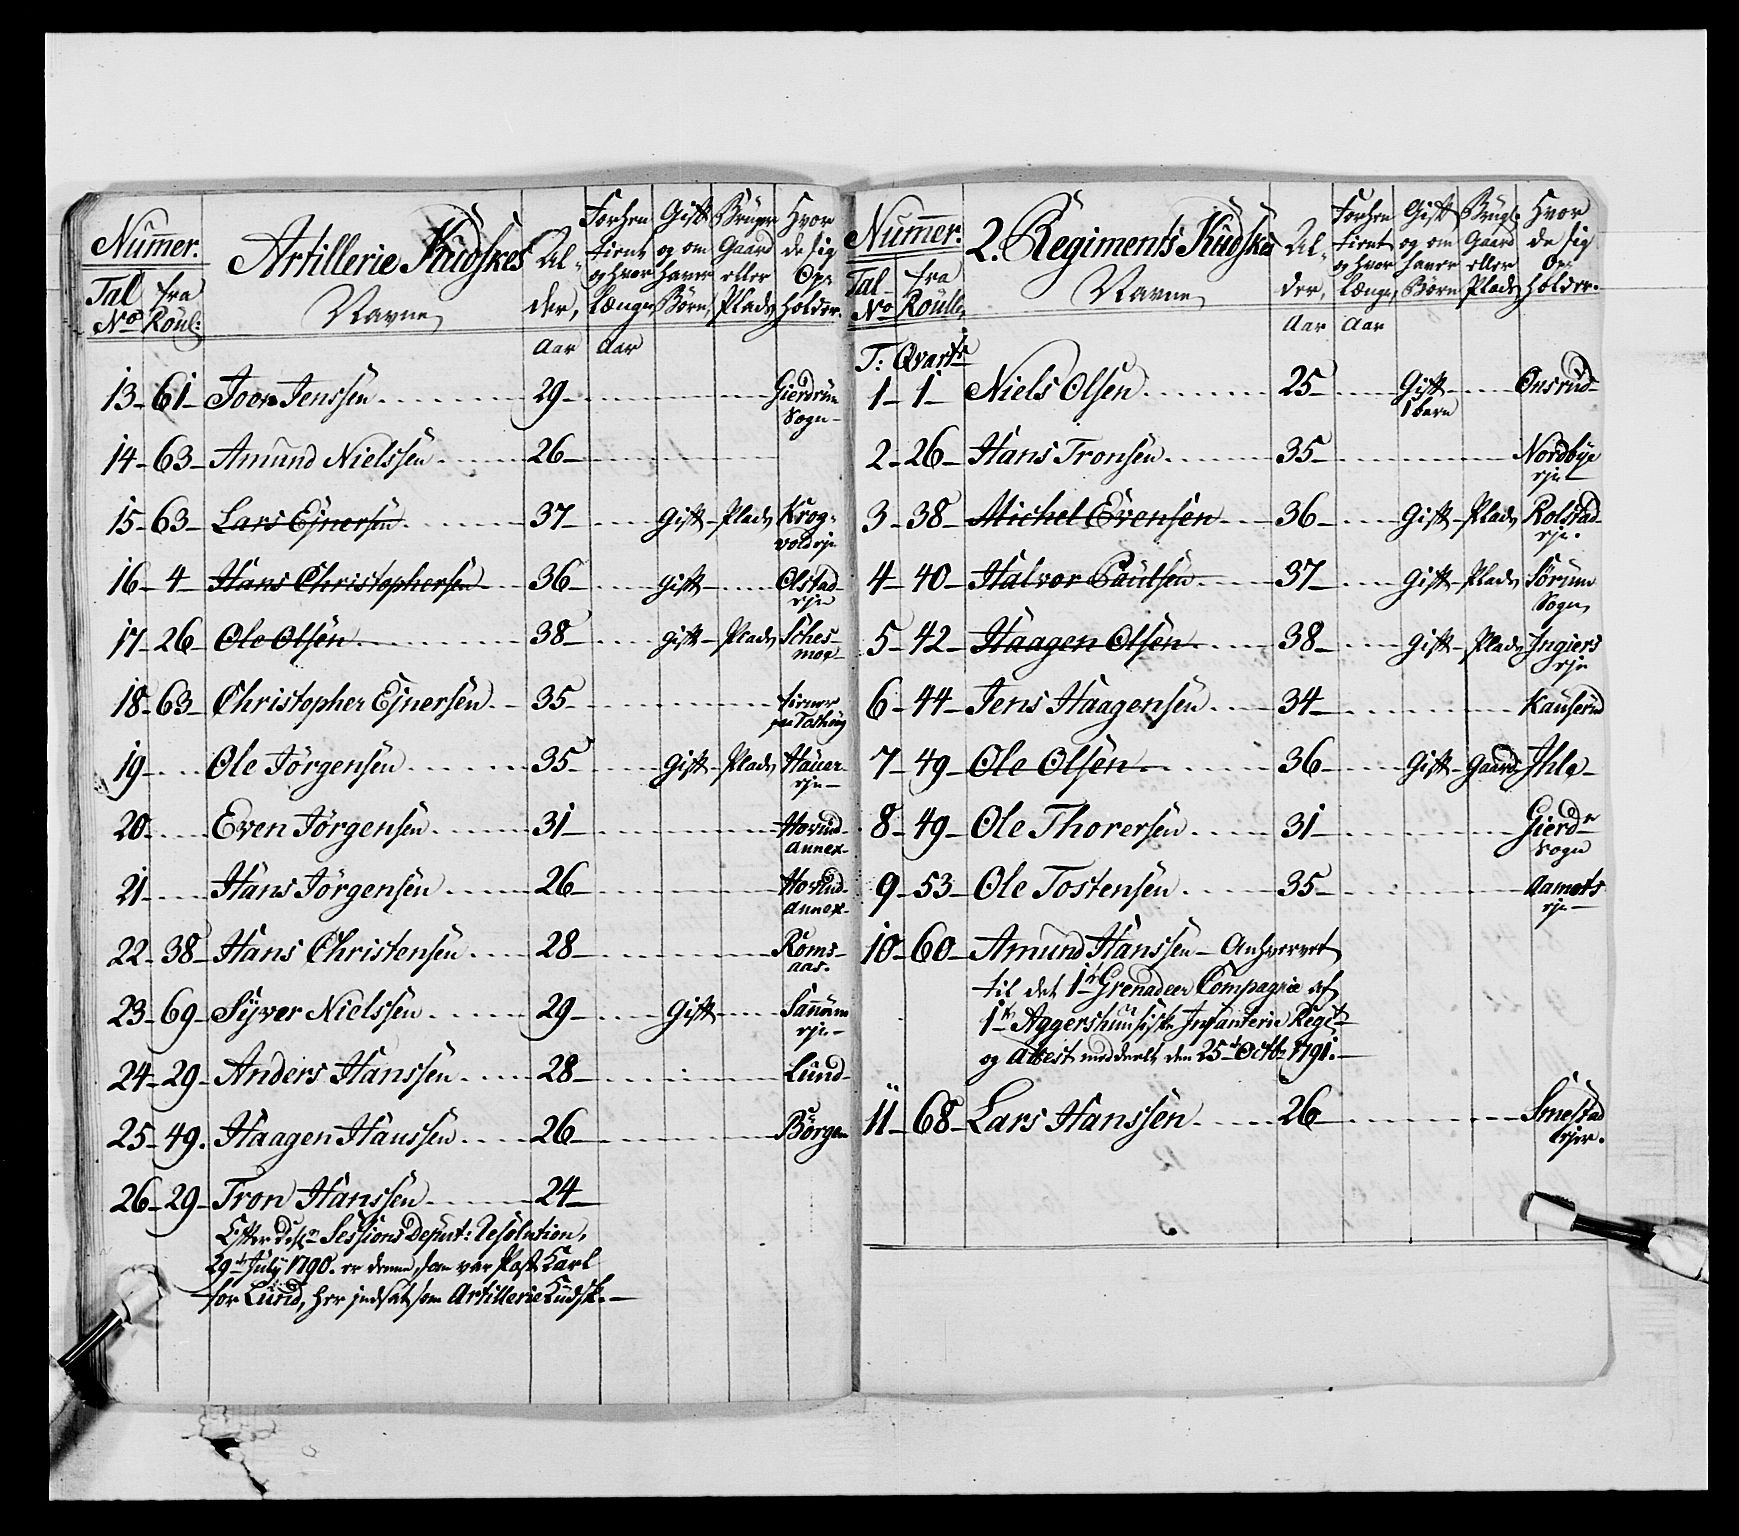 Numer.
Artillerie Kudskes
Al-
der,
Forhen
tient
og hvor
længe,
Gift
og om
haver
Børn,
Bruger
Gaard
eller
Plads
Hvor
de sig
Op-
holder.
Tal
No
fra
Roul:
Navne,
Aar Aar
13 - 61 - Joen Jenssen 29 - Gierdrum
Sogn -
14 - 63 - Amund Nielssen 26 -
15 - 63 - Lars Ejnersen 37 - Gift - Plads Krog-
vold eje
16 - 4 - Hans Christophersen 36 - gift - Olstad
eje
17 - 26 - Ole Olsen 38 - gift - Plads Sches-
moe
18 - 63 - Christopher Ejnersen 35 - tiener
paa Tothing
19 - Ole Jörgensen 35 - Gift - Plads Hauer-
eje -
20 - Even Jörgensen 31 - Hovind
Annex -
21 - Hans Jörgensen 26 - Hovind
Annex -
22 - 38 - Hans Christensen 28 - Roms-
aas.
23 - 69 - Syver Nielssen 29 - Gift -
eje -
24 - 29 - Anders Hanssen 28 - Lund -
25 - 49. Haagen Hanssen 26 - Börgen
26 - 29 - Tron Hanssen 24 -
Efter Sessions Deput: Resolution,
29de July 1790. er denne, som var Post Karl
for Lund, her indsat som Artillerie Kudsk. -
Numer.
2. Regiments Kudskes
Al-
der,
Forhen
tient
og hvor
længe,
Gift
og om
haver
Børn
Brug:
Gaard
eller
Plads
Hvor
de sig
Op-
holder.
Tal
No
fra
Roulle,
Navne,
Aar Aar
T: Qvartr
1 - 1 - Niels Olsen 25 - Gift - Onsrud
1 barn
2 - 26 - Hans Tronsen 35 - Nordbye
eje
3 - 38 - Michel Evensen 36 - Gift - Plads Rolstad
eje.
4 - 40 - Halvor Paulsen 37 - Gift - Plads Sörum
Sogn,
5 - 42 - Haagen Olsen 38 - Gift - Plads Ingiers
eje
6 - 44 - Jens Haagensen 34 - Kauserud
7 - 49 - Ole Olsen 36 - Gift - Gaard Ihle -
8 - 49 - Ole Thorersen 31 - Gierdr
Sogn
9 - 53 - Ole Tostensen 35 - Aamots
eje -
10 - 60 - Amund Hanssen - Anhvervet
til det 1te Grenadeer Compagnie af
1te Aggershuusiske Infanterie Regit
og Attest meddeelt den 25de Octbr 1791. -
11 - 68 - Lars Hanssen 26 - Smestad
ejer.